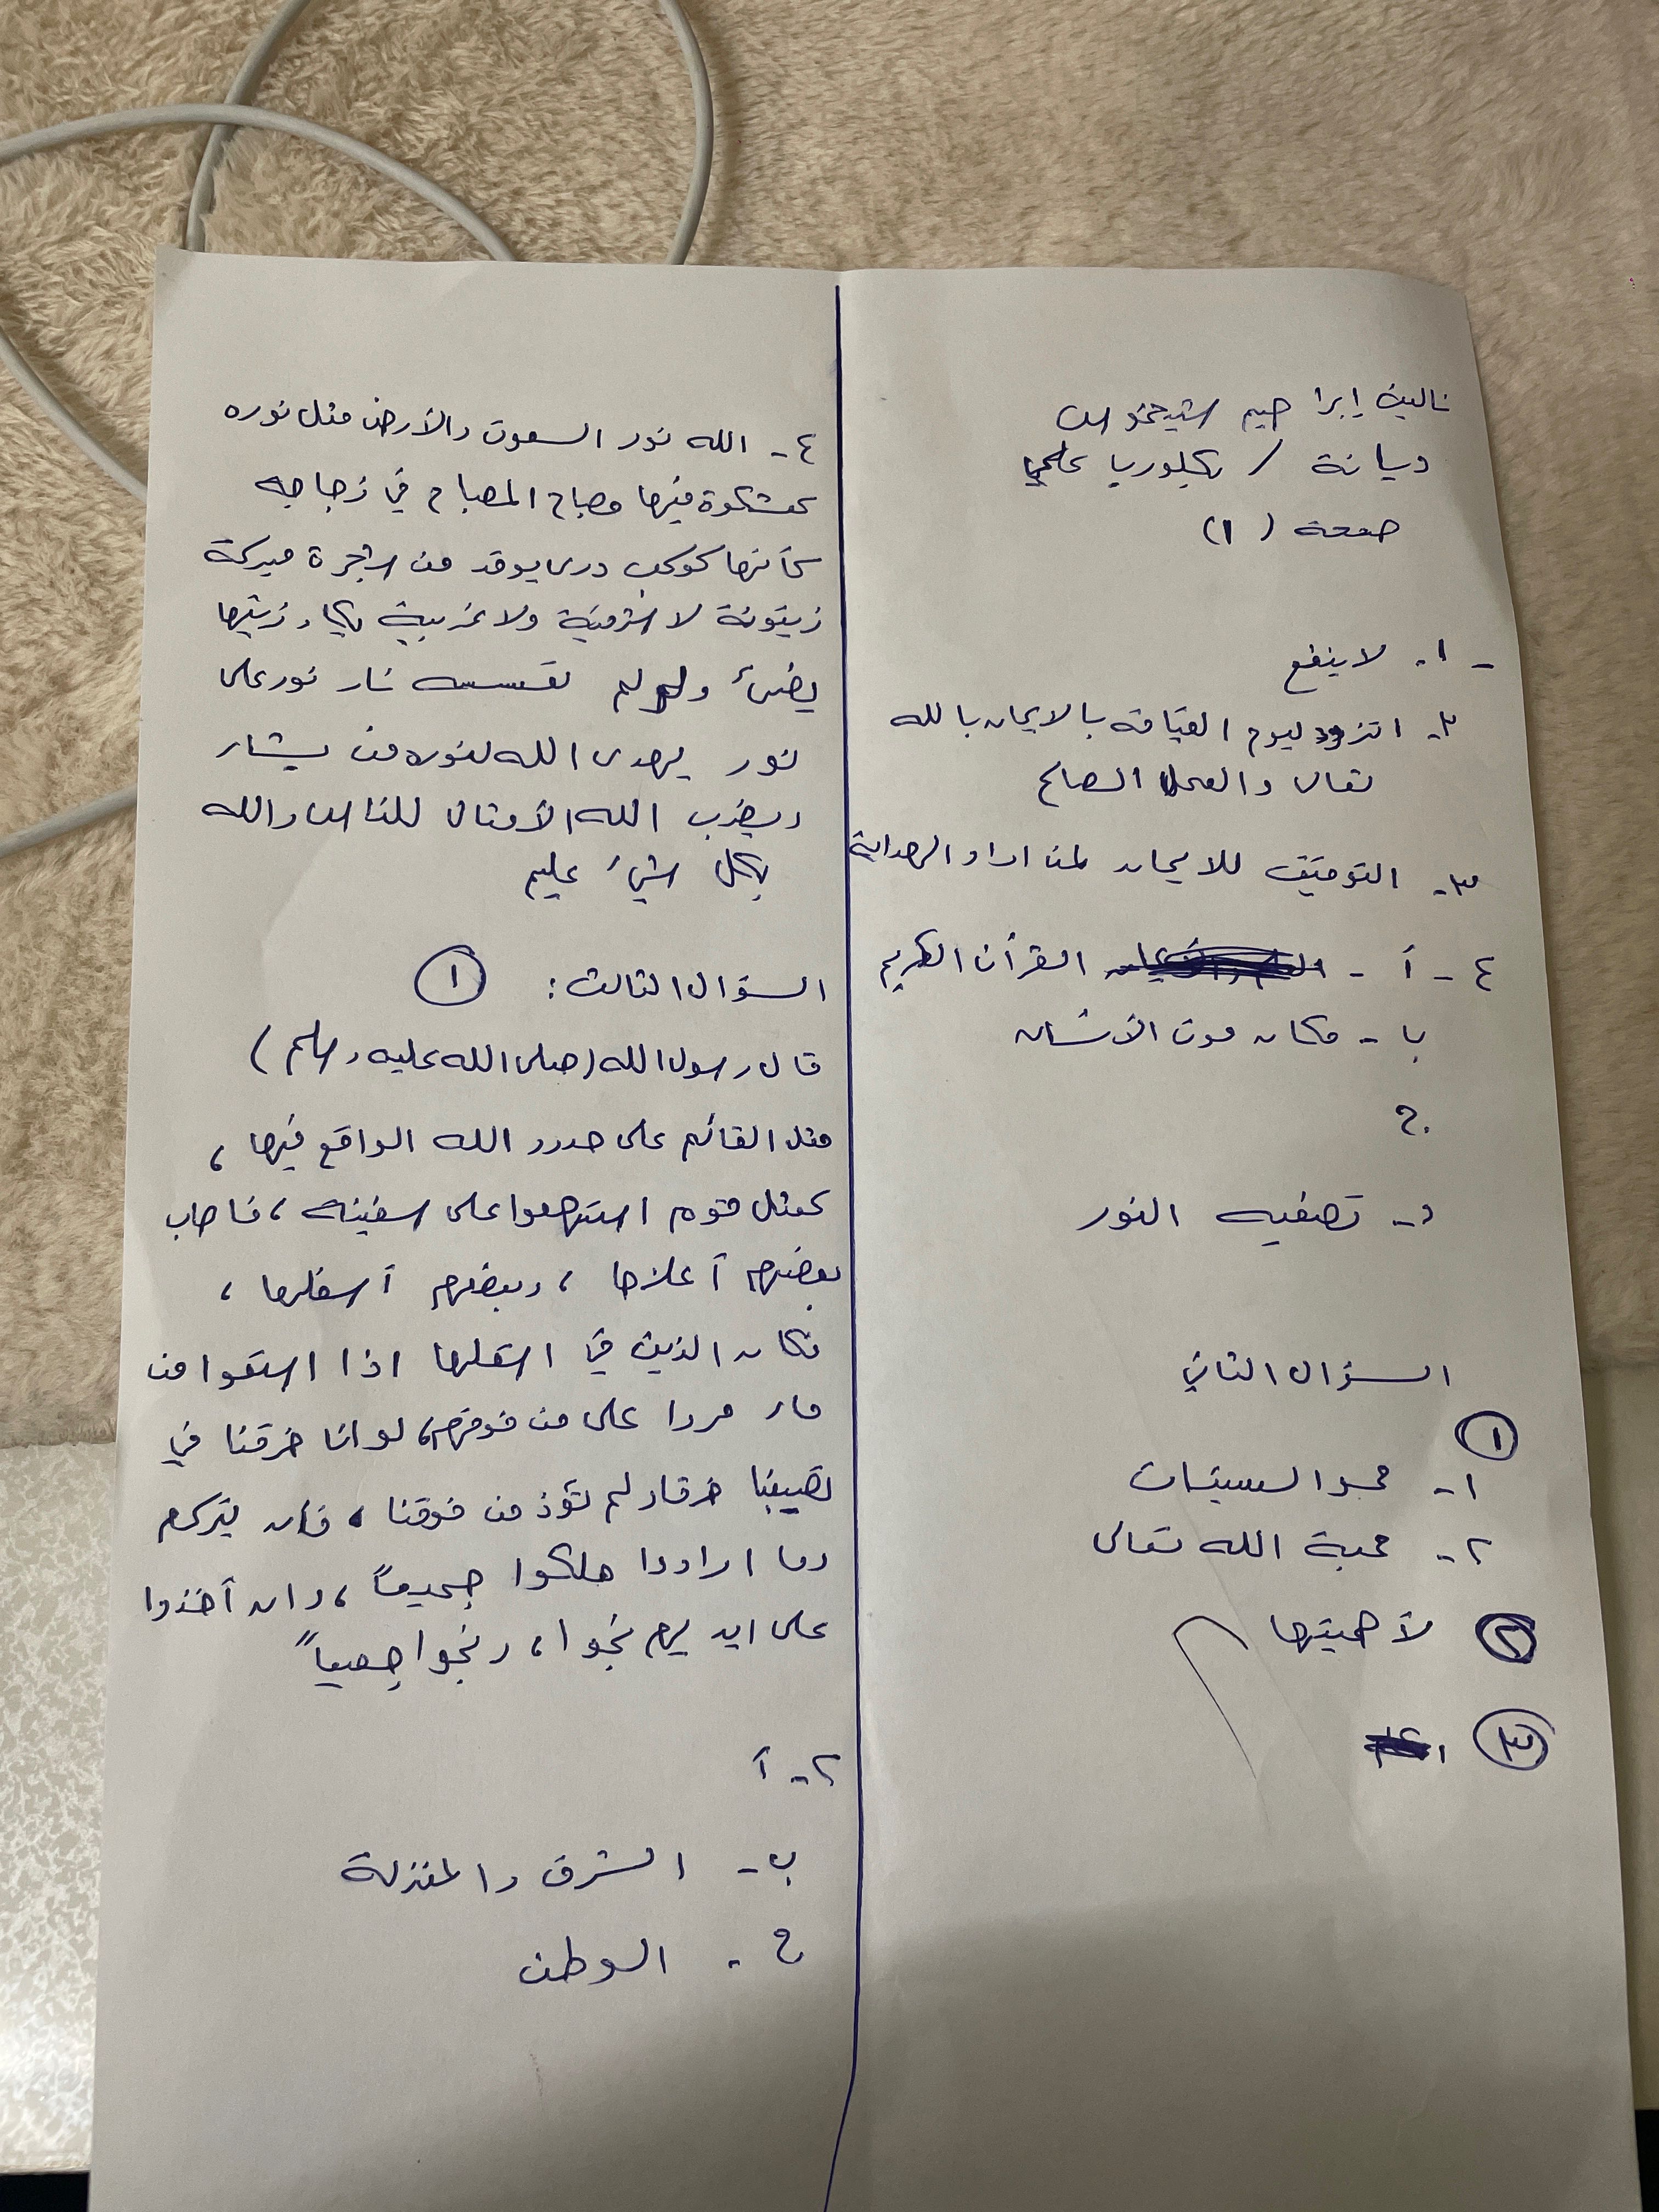 نالين إبراهيم
ديانة / بكلوريا علمي
صفحة (١)
- ١. لا ينفع
٢. اتزود ليوم القيامة بالايمان بالله
تعالى والعمل الصالح
٣. التوفيق للايمان لمن اراد الهداية
٤ - أ - القرآن الكريم
با - مكان موت الأنسان
ج.
د - تصفيه النور
السؤال الثاني
١
١ - محو السيئات
٢ - محبة الله تعالى
٢ لأهميتها
٣
٤ - الله نور السموت والأرض مثل نوره
كمشكوة فيها مصباح المصباح في زجاجه
كأنها كوكب درى يوقد من شجرة مبركة
زيتونة لا شرقية ولا غربية يكاد زيتها
يضىء ولو لم تمسسه نار نور على
نور يهدى الله لنوره من يشار
ويضرب الله الأمثال للناس والله
بكل شيء عليم
السؤال الثالث : ١
قال رسول الله (صلى الله عليه وسلم)
مثل القائم على حدود الله الواقع فيها ،
كمثل قوم استهموا على سفينه ، فاصاب
بعضهم أعلاها ، وبعضهم أسفلها ،
فكان الذين في اسفلها اذا استقوا من
مار مروا على من فوقهم، لو انا خرقنا في
نصيبنا خرقا ولم نؤذ من فوقنا ، فان يتركم
وما ارادوا هلكوا جميعاً ، وان أخذوا
على ايديهم نجوا ، ونجوا جميعاً
٢ - أ
ب - الشرف والمنزلة
ج - الوطن